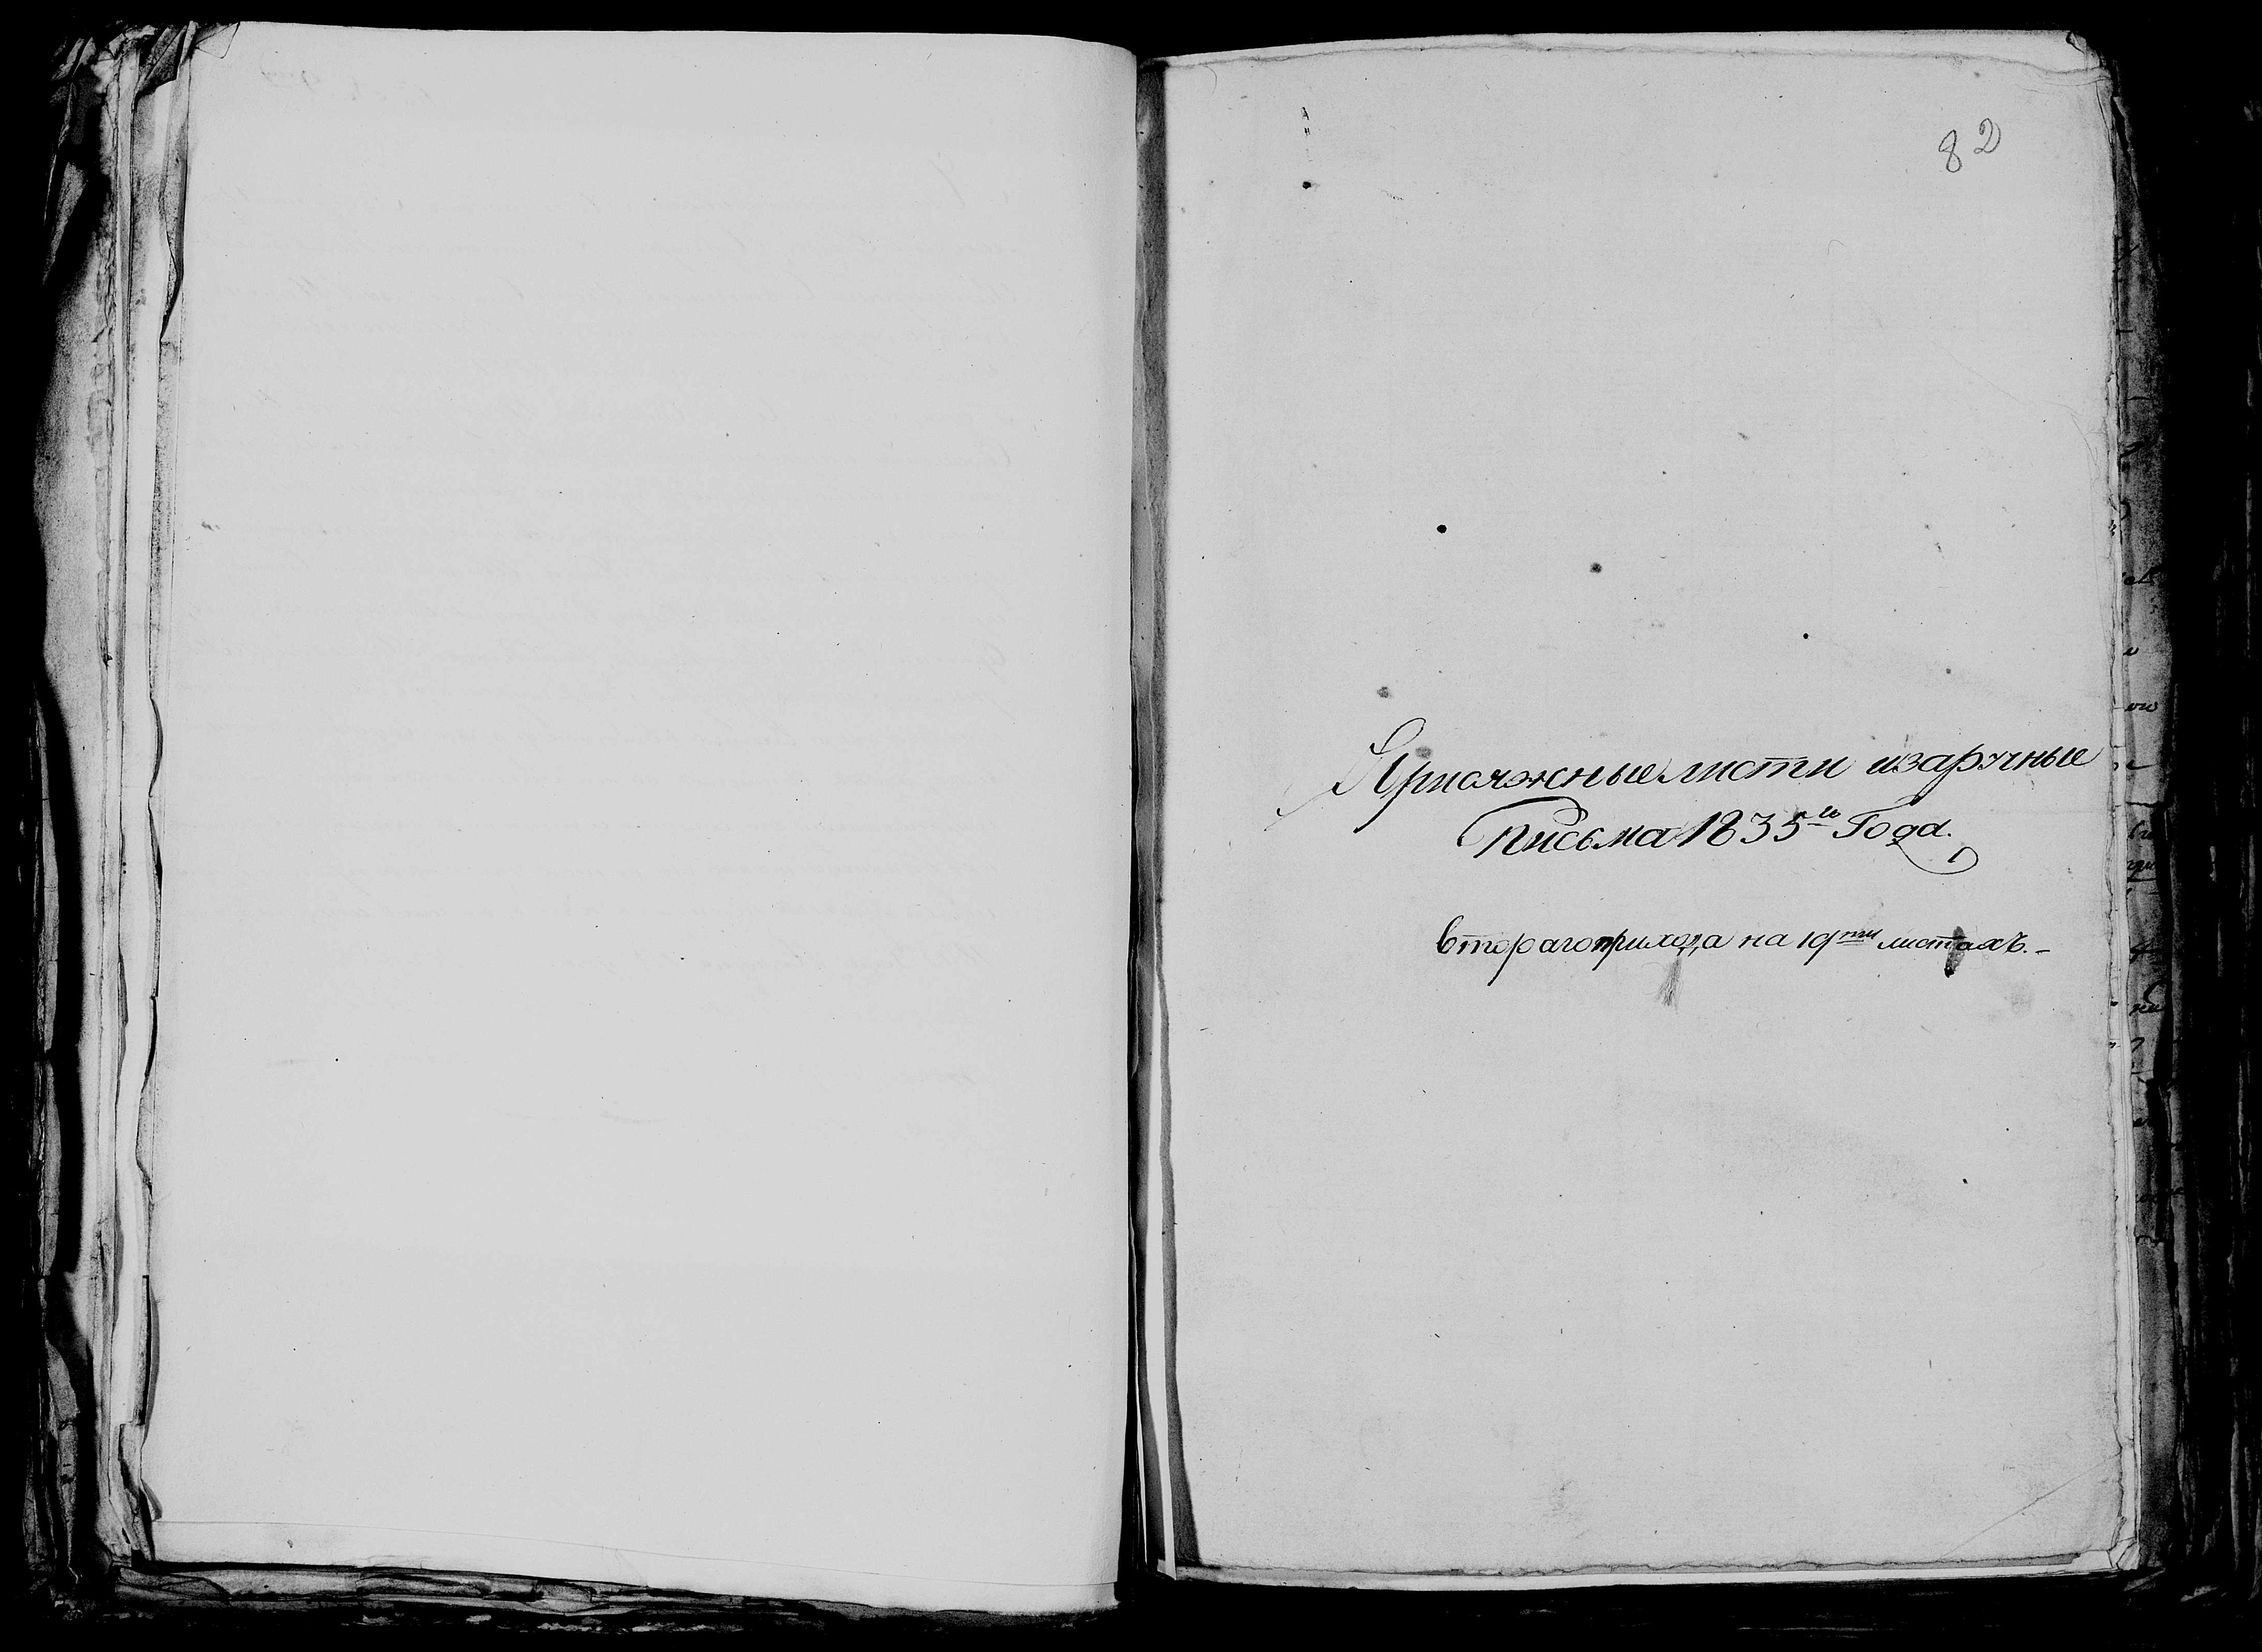 82
Присяжные листи изаручные
Письма 1835го Года.
втораго прихода на 19ти листахъ.-